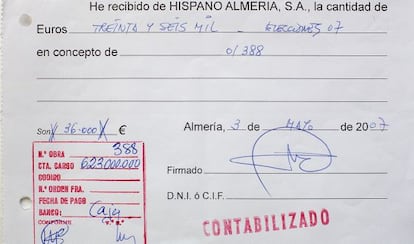 He recibido de HISPANO ALMERIA, S.A., la cantidad de
Euros TREINTA Y SEIS MIL - ELECCIONES 07
en concepto de 0/388
Son # 36.000 # €
Almería, 3 de MAYO de 2007
N.º OBRA 388
CTA. CARGO 623000000
CODIGO
N.º ORDEN FRA.
FECHA DE PAGO
BANCO: Caja
CONFORME
Firmado
D.N.I. ó C.I.F.
CONTABILIZADO